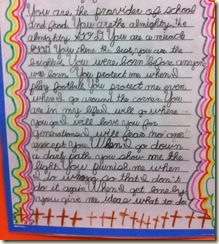 You are the provider of school
and food. You are the almighty, the
almighty G-D. You are a miracle
You shine the best, you are the
brightest. You were born before anyone
was born. You protect me when I
play football. You protect me even
when I go around the corner. You
are in my life. I will go where
you go. I will love you for
generations. I will fear no one
except You. When I go down
a dark path you show me the
light. You punish me when
I do wrong so that I don't
do it again. When I get
you give me ideas what to do.